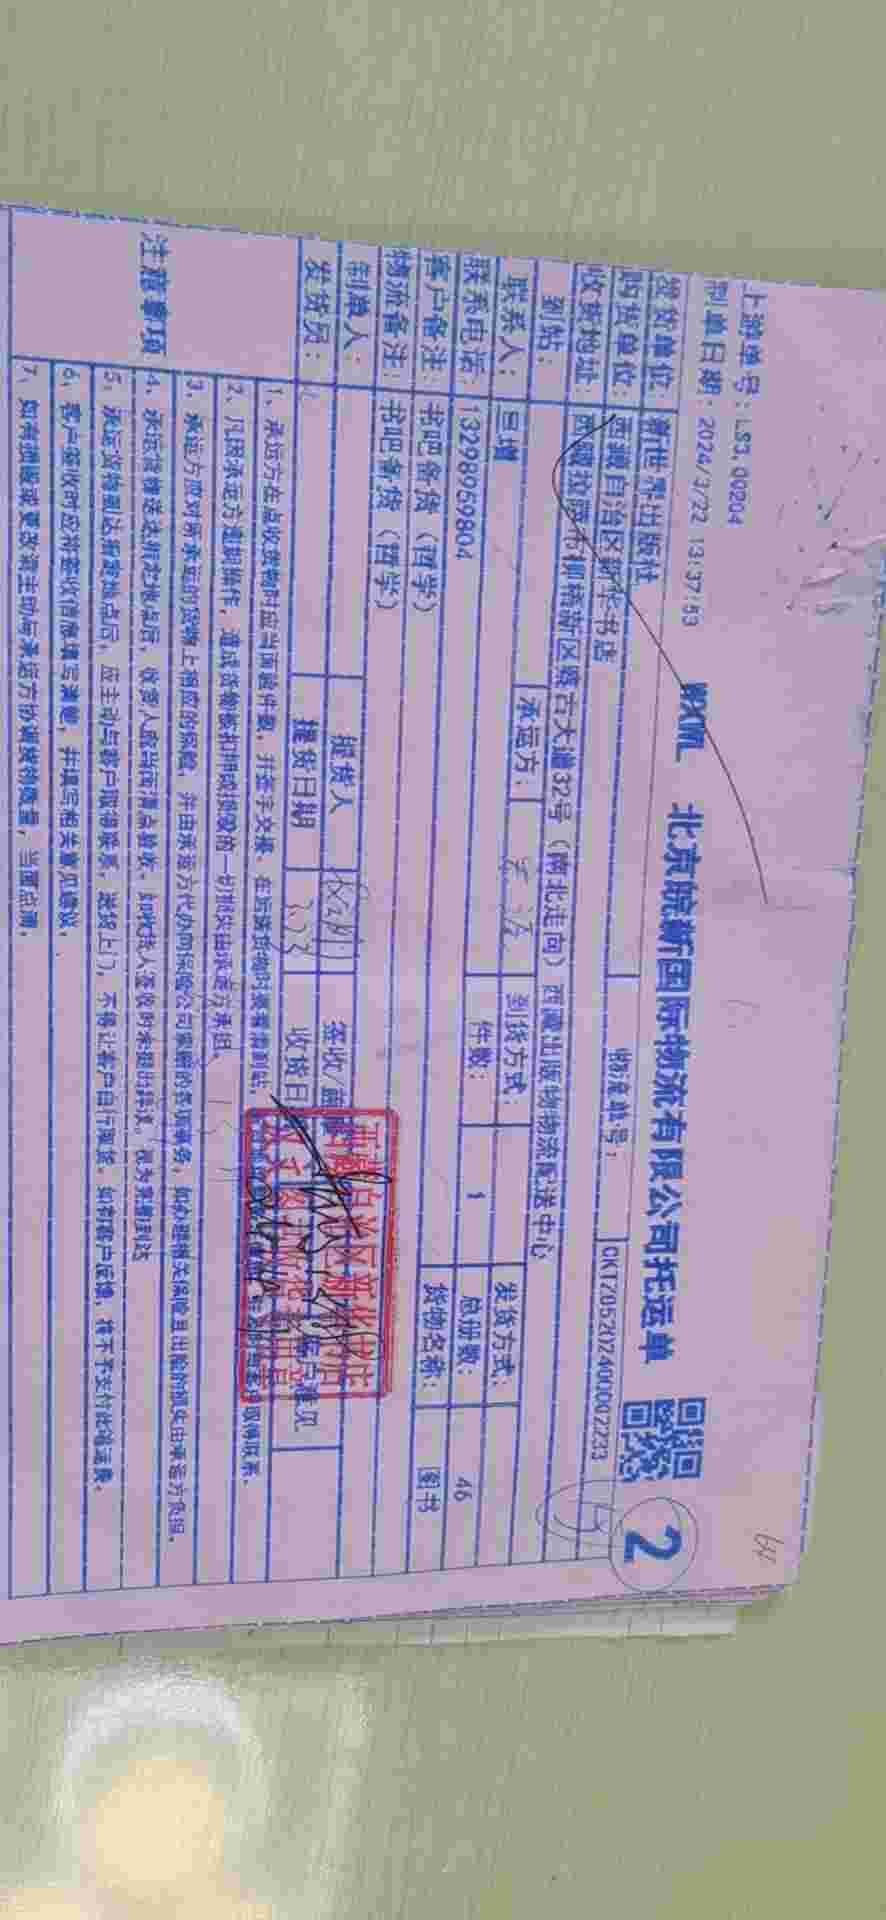 上游单号：LS3.00204
制单日期：2024/3/22 13:37:53
WXWL 北京皖新国际物流有限公司托运单
2
发货单位: 新世界出版社 销售单号: CKTZ0520240002233
购货单位: 西藏自治区新华书店
收货地址: 西藏拉萨市柳梧新区察古大道32号（南北走向）西藏出版物物流配送中心
到站: 承运方: 到货方式: 发货方式:
联系人: 旦增 件数: 1 总册数: 46
联系电话: 13298959804 货物名称: 图书
客户备注: 书吧备货（哲学）
物流备注: 书吧备货（哲学）
制单人: 提货人 签收/盖
发货员: 提货日期 3.23 收货日 客户意见
注意事项
1、承运方在点收货物时应当面验件数，并签字交接。
2、凡因承运方违规操作，造成货物被扣押或损毁的一切损失由承运方承担。
3、承运方应对所承运的货物上相应的保险，并由承运方代办向保险公司索赔的各项事务，如办理相关保险且出险的损失由承运方负担。
4、承运货物送达指定地点后，收货人应当面清点验收，如收货人签收时未提出异议，视为完整到达
5、承运货物到达指定地点后，应主动与客户取得联系，送货上门，不得让客户自行取货，如有客户反馈，将不予支付此笔运费。
6、客户签收时应将签收信息填写清楚，并填写相关意见建议。
7、如有损毁或更改请主动与承运方协调货物数量，当面点清。
西藏自治区新华书店